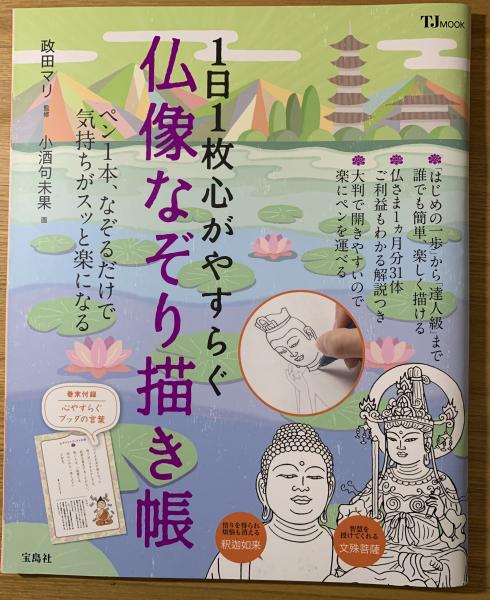 TJ MOOK
1日1枚心がやすらぐ
仏像なぞり描き帳
政田マリ 監修 小酒句未果 画
ペン1本、なぞるだけで
気持ちがスッと楽になる
「はじめの一歩」から「達人級」まで
誰でも簡単、楽しく描ける
仏さま1ヵ月分31体
ご利益もわかる解説つき
大判で開きやすいので
楽にペンを運べる
巻末付録
心やすらぐ
ブッダの言葉
悟りを得られ
煩悩も消える
釈迦如来
智慧を
授けてくれる
文殊菩薩
宝島社